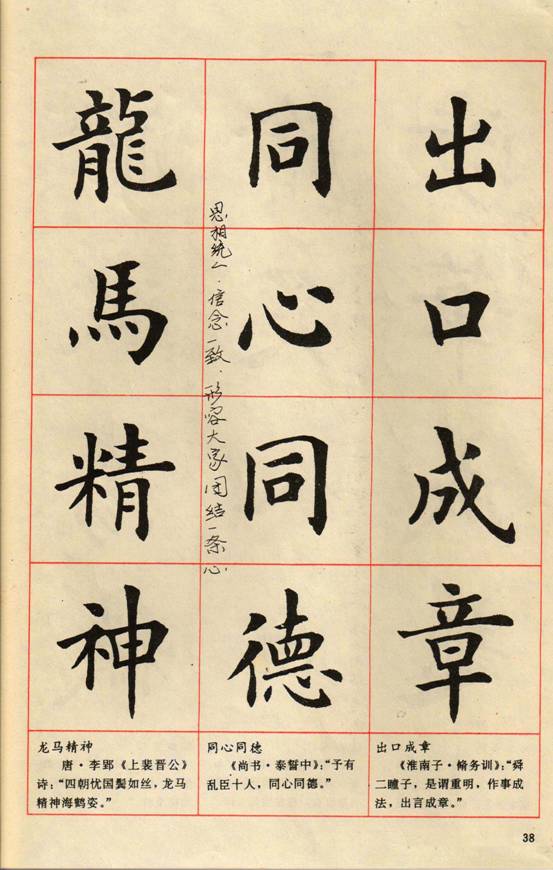 出口成章
同心同德
龍馬精神
思相统一．信念一致．形容大家团结一条心．
龙马精神
唐·李郢《上裴晋公》
诗：“四朝忧国鬓如丝，龙马
精神海鹤姿。”
同心同德
《尚书·泰誓中》：“予有
乱臣十人，同心同德。”
出口成章
《淮南子·脩务训》：“舜
二瞳子，是谓重明，作事成
法，出言成章。”
38